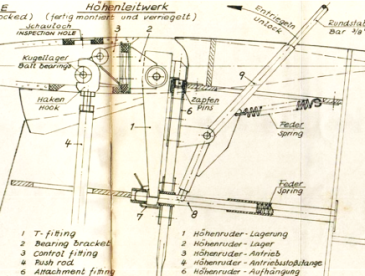 E Höhenleitwerk
ocked) (fertig montiert und verriegelt)
Schauloch
INSPECTION HOLE
3
2
Entriegeln
unlock
Rundstab
Bar 3/8"
Kugellager
Ball bearings
9
Haken
Hook
Zapfen
Pins
6
1
Feder
Spring
4
Feder
Spring
7
8
1 T-fitting
2 Bearing bracket
3 Control fitting
4 Push rod
6 Attachment fitting
1 Höhenruder-Lagerung
2 Höhenruder-Lager
3 Höhenruder-Antrieb
4 Höhenruder-Antriebstoßstange
6 Höhenruder-Aufhängung